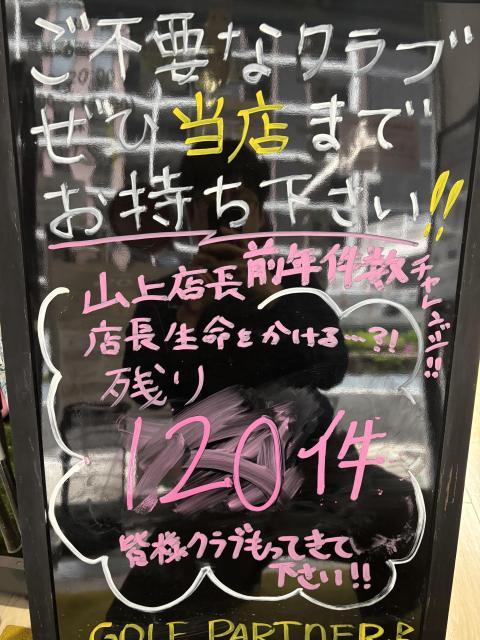 ご不要なクラブ
ぜひ当店まで
お持ち下さい!!
山上店長前年件数チャレンジ!!
店長生命をかける…?!
残り
120件
皆様クラブもってきて
下さい!!
GOLF PARTNER